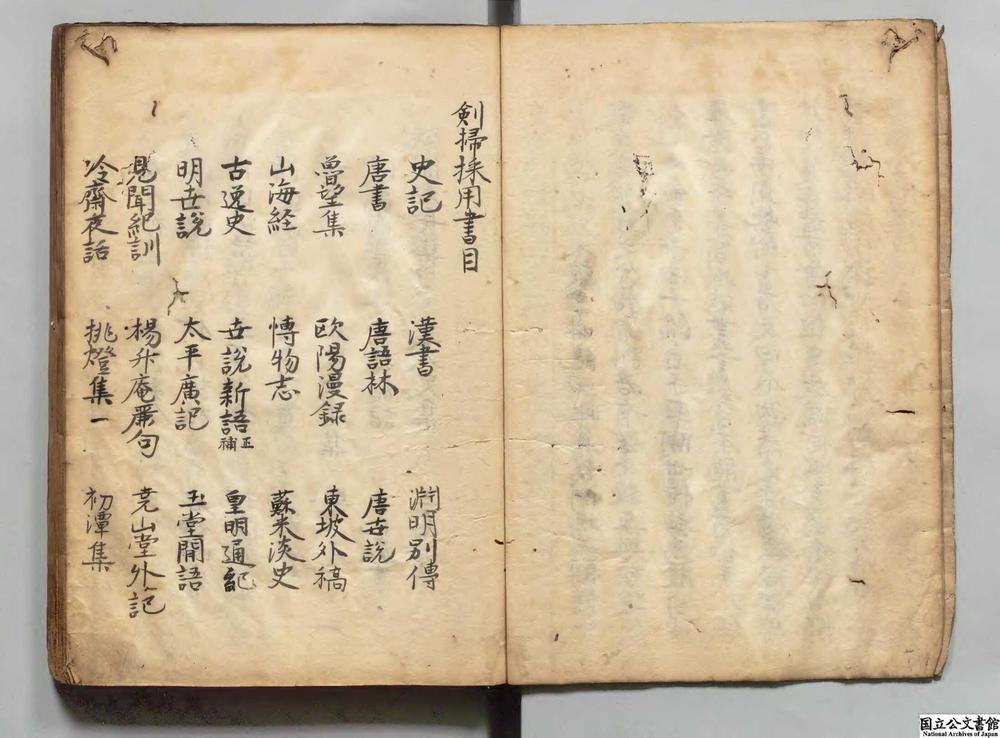 剣掃採用書目
史記 漢書 淵明別傳
唐書 唐語林 唐世説
魯望集 欧陽漫録 東坡外稿
山海経 博物志 蘇米淡史
古逸史 世説新語正補 皇明通紀
明世説 太平廣記 玉堂閒語
見聞紀訓 楊升庵麗句 尭山堂外記
冷齋夜話 挑燈集一 初潭集
国立公文書館
National Archives of Japan